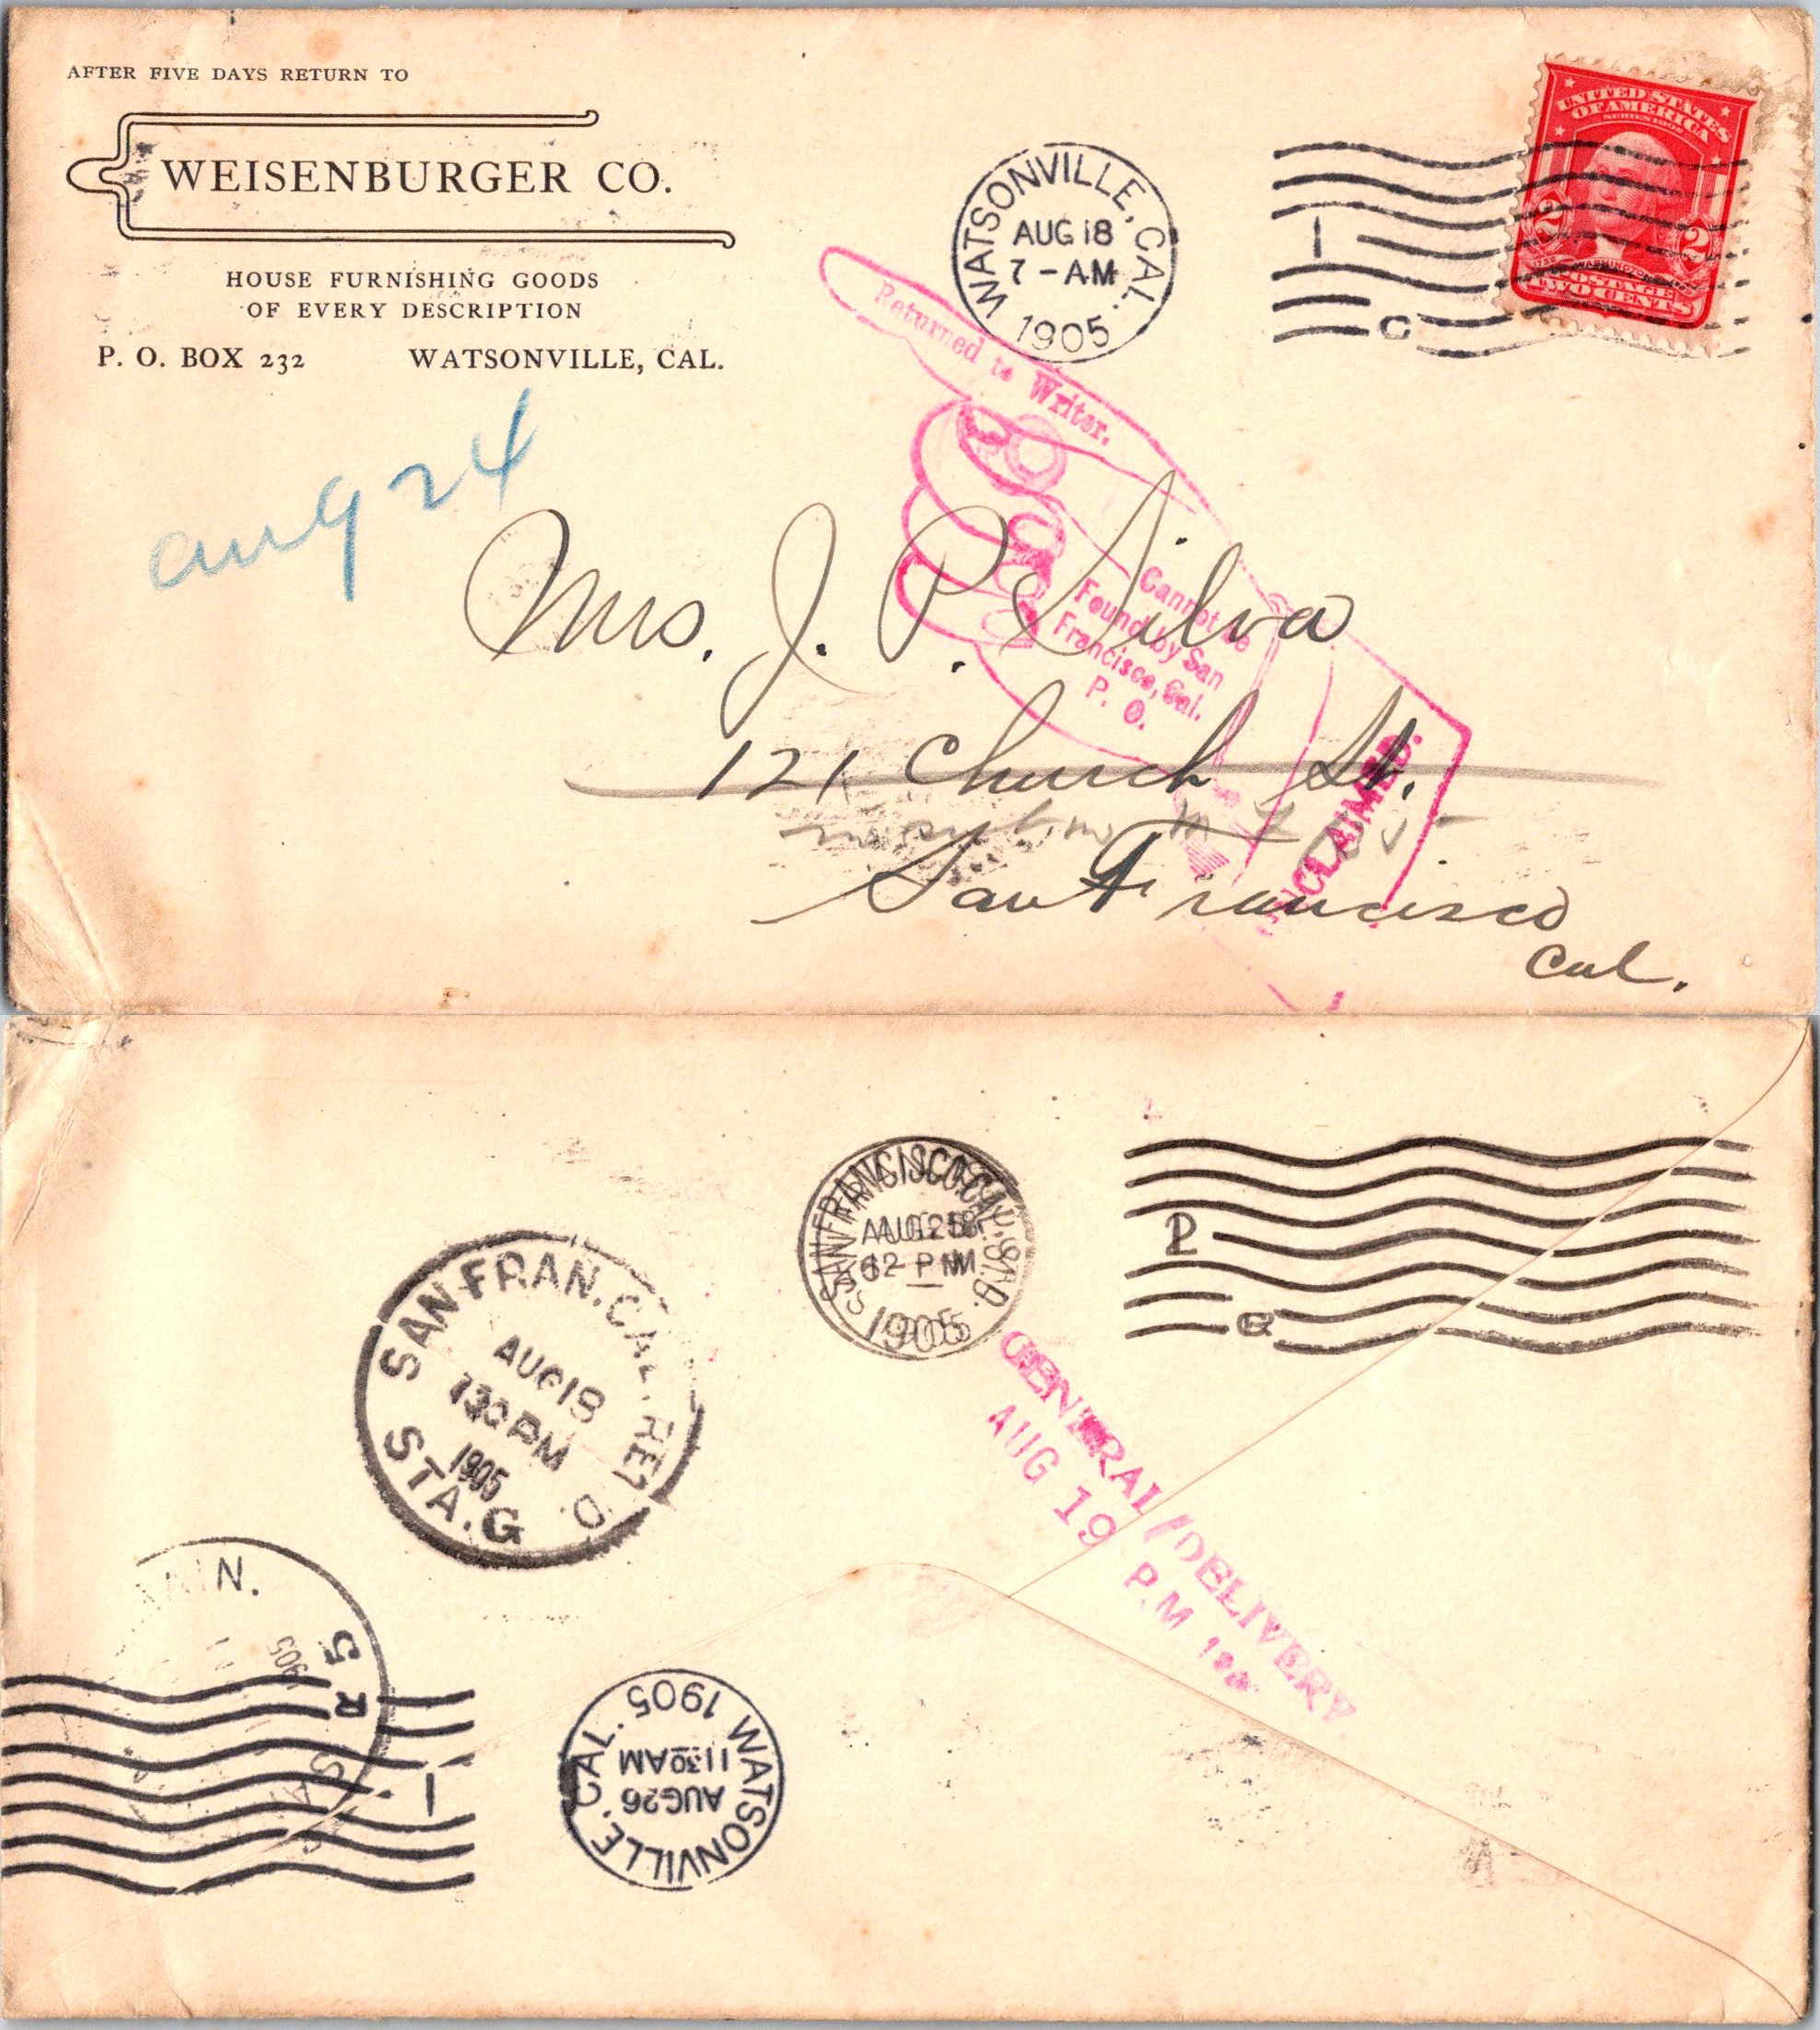 AFTER FIVE DAYS RETURN TO
WEISENBURGER CO.
HOUSE FURNISHING GOODS
OF EVERY DESCRIPTION
P. O. BOX 232 WATSONVILLE, CAL.
WATSONVILLE, CAL.
AUG 18
7 - AM
1905
1
C
UNITED STATES
OF AMERICA
SERIES 1902
2 2
WASHINGTON
TWO CENTS
Returned to Writer.
Cannot be
Found by San
Francisco, Cal.
P. O.
aug 24
Mrs. J. P. Silva
121 Church St.
San Francisco
Cal.
SAN FRANCISCO, CAL.
1905
D
SAN FRAN. CAL. REC'D.
AUG 18
730 PM
1905
STA. G
GENERAL DELIVERY
AUG 19 P.M
5
R
905
1
WATSONVILLE, CAL.
AUG 26
1130 AM
1905